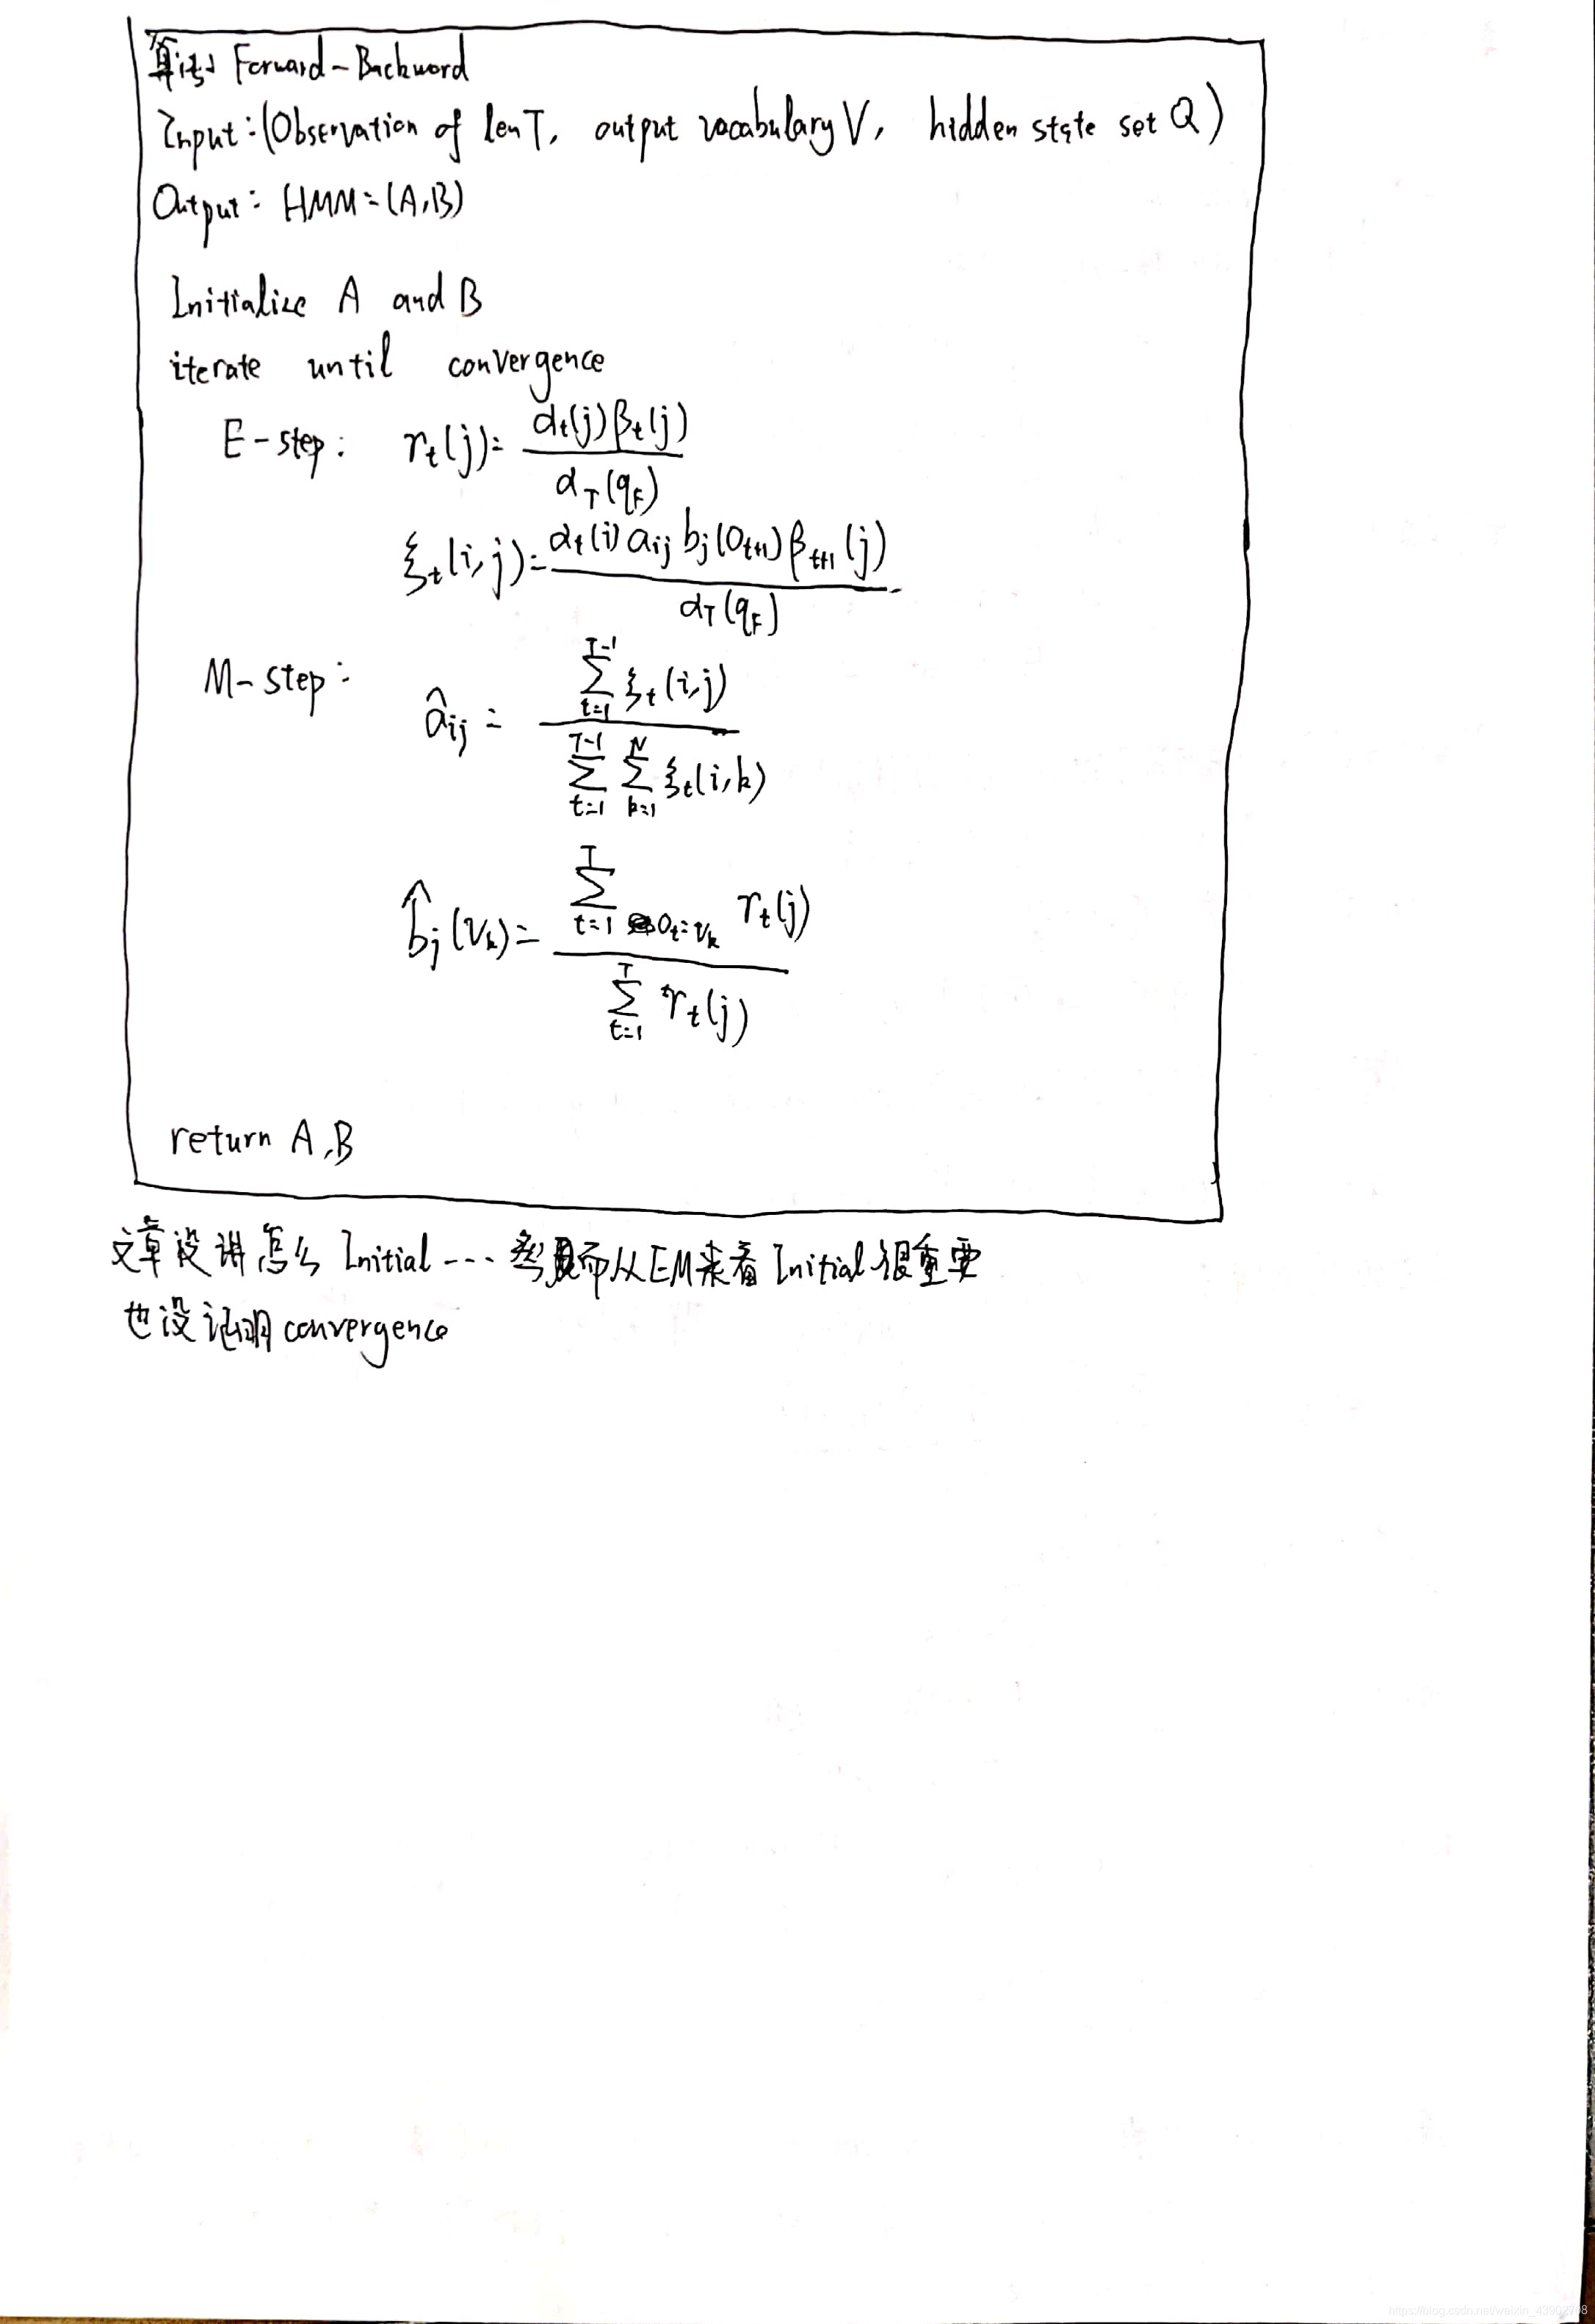 算法 Forward-Backword
Input:(Observation of len T, output vocabulary V, hidden state set Q)
Output: HMM=(A,B)
Initialize A and B
iterate until convergence
E-step: γ_t(j)= α_t(j)β_t(j) / α_T(q_F)
ξ_t(i,j)= α_t(i) a_ij b_j(o_t+1) β_t+1(j) / α_T(q_F)
M-step: â_ij = Σ_{t=1}^{T-1} ξ_t(i,j) / Σ_{t=1}^{T-1} Σ_{k=1}^{N} ξ_t(i,k)
b̂_j(v_k)= Σ_{t=1 o_t=v_k}^{T} γ_t(j) / Σ_{t=1}^{T} γ_t(j)
return A,B
文章没讲怎么 Initial --- 而从EM来看 Initial 很重要
也没证明 convergence